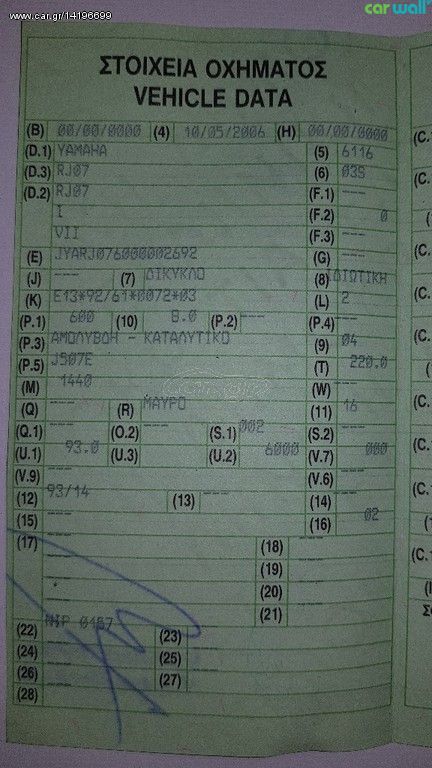 www.car.gr/14196699
car wall
ΣΤΟΙΧΕΙΑ ΟΧΗΜΑΤΟΣ
VEHICLE DATA
(B) 00/00/0000 (4) 10/05/2006 (H) 00/00/0000
(D.1) YAMAHA (5) 6116
(D.3) RJ07 (6) 03S
(D.2) RJ07 (F.1) ---
I (F.2) 0
VII (F.3) ---
(E) JYARJ076000002692 (G) ---
(J) --- (7) ΔΙΚΥΚΛΟ (8) ΙΔΙΩΤΙΚΗ
(K) E13*92/61*0072*03 (L) 2
(P.1) 600 (10) 8.0 (P.2) --- (P.4) ---
(P.3) ΑΜΟΛΥΒΔΗ - ΚΑΤΑΛΥΤΙΚΟ (9) 04
(P.5) J507E (T) 220.0
(M) 1440 (W) ---
(Q) --- (R) ΜΑΥΡΟ (11) 16
(Q.1) --- (O.2) --- (S.1) 002 (S.2) ---
(U.1) 93.0 (U.3) --- (U.2) 6000 (V.7) 000
(V.9) --- (V.6) ---
(12) 93/14 (13) --- (14) ---
(15) --- (16) 02
(17) --- (18) ---
(19) ---
(20) ---
(21) ---
(22) (23) ---
(24) --- (25) ---
(26) --- (27) ---
(28) ---
(C.
(C.
(C.
(C.
(C.
(C.
(C.
(C.